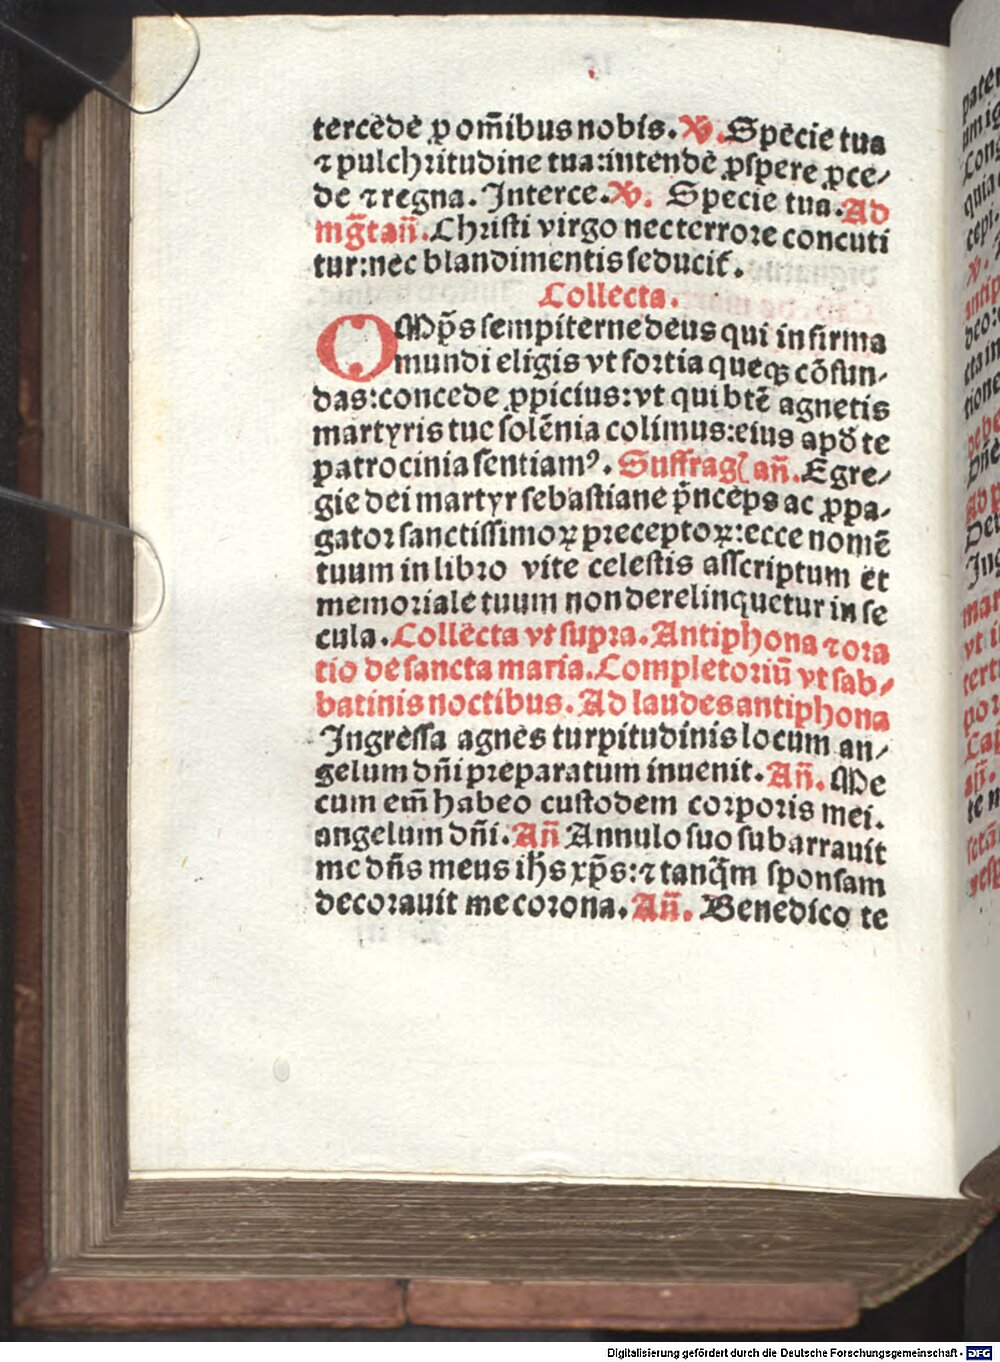 tercēde ꝓ om̄ibus nobis. ℣. Spēcie tua
⁊ pulchritudine tua:intende ꝓspere ꝓce/
de ⁊ regna. Interce. ℣. Specie tua. Ad
mg̅t an̄. Christi virgo nec terrore concuti
tur:nec blandimentis seducit̄.
Collecta.
OMp̄s sempiterne deus qui infirma
mundi eligis vt fortia queqꝫ cōfun-
das:concede ꝓpicius:vt qui btē agnetis
martyris tue solēnia colimus:eius apd̄ te
patrocinia sentiamꝰ. Suffragͥ an̄. Egre/
gie dei martyr sebastiane p̄nceps ac ꝓpa-
gator sanctissimoꝝ preceptoꝝ:ecce nomē
tuum in libro vite celestis asscriptum et
memoriale tuum non derelinquetur in se
cula. Collecta vt supra. Antiphona ⁊ ora
tio de sancta maria. Completoriū vt sab/
batinis noctibus. Ad laudes antiphona
Ingressa agnes turpitudinis locum an/
gelum dn̄i preparatum inuenit. An̄. Me
cum em̄ habeo custodem corporis mei.
angelum dn̄i. An̄ Annulo suo subarrauit
me dn̄s meus ihs xp̄s:⁊ tanq̄m sponsam
decorauit me corona. An̄. Benedico te
Digitalisierung gefördert durch die Deutsche Forschungsgemeinschaft - DFG